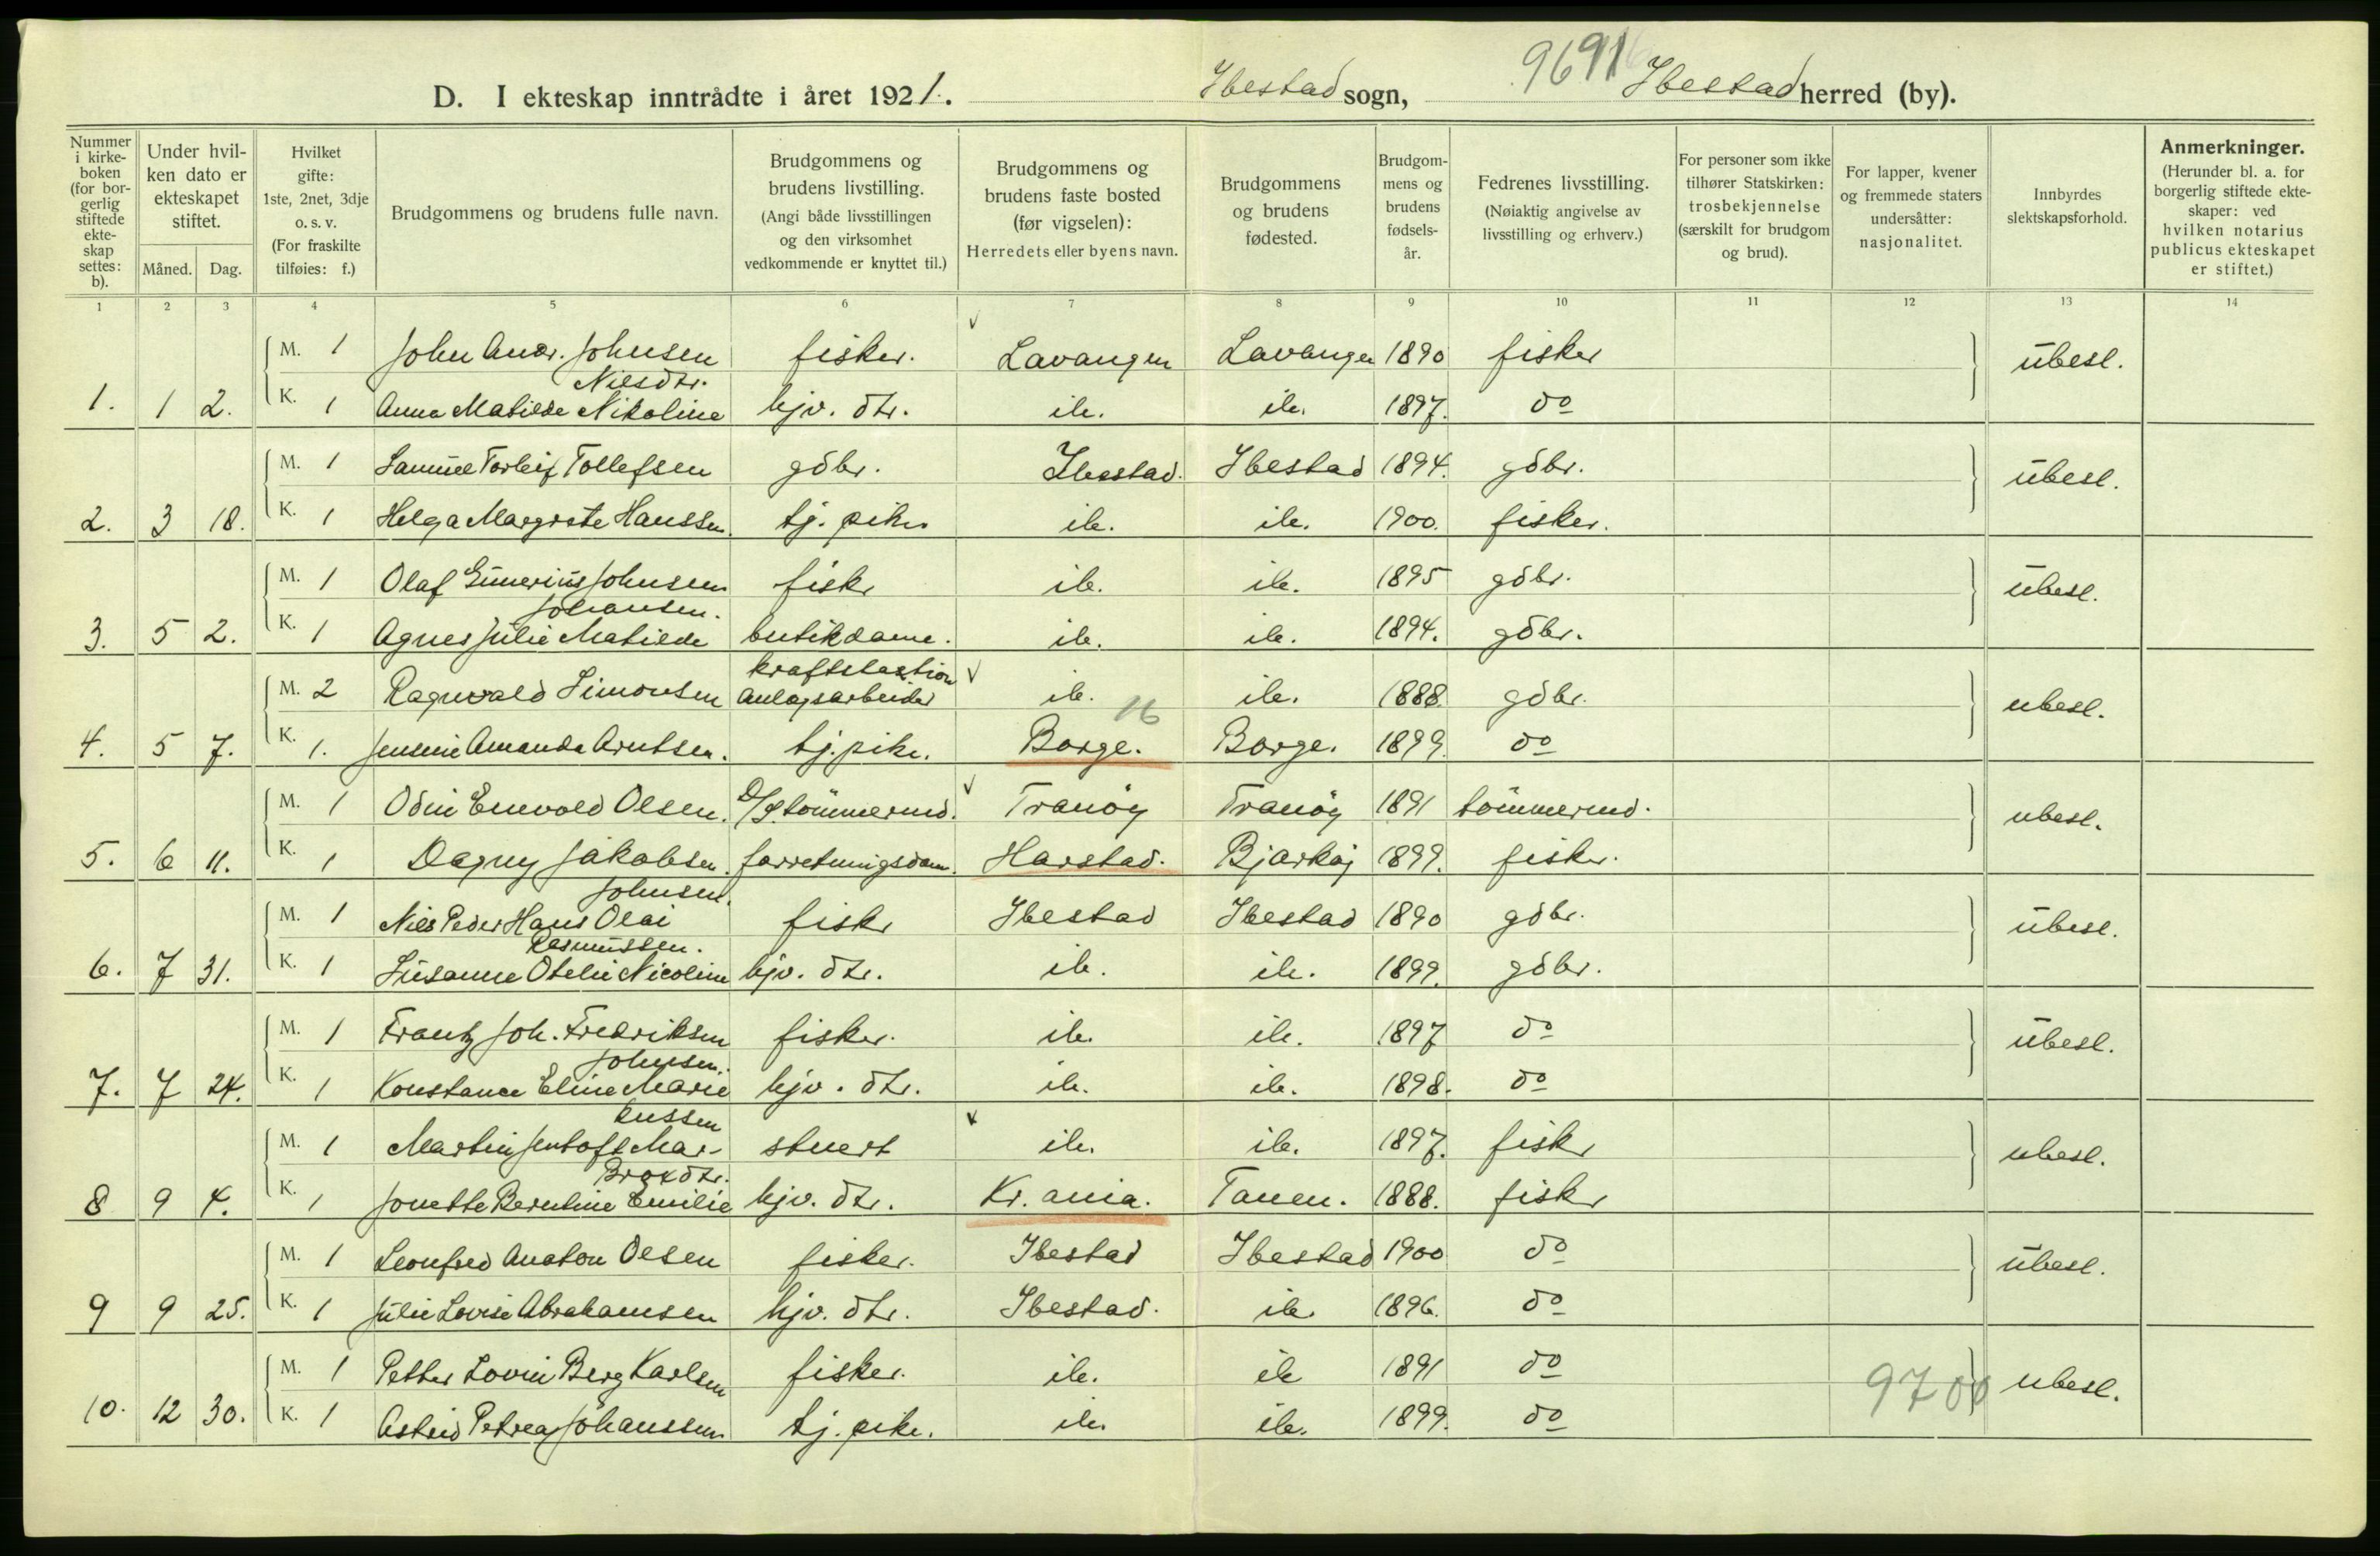 9691
D. I ekteskap inntrådte i året 1921. Ibestad sogn, Ibestad herred (by).
Nummer i kirkeboken (for borgerlig stiftede ekteskap settes: b). | Under hvilken dato er ekteskapet stiftet. Måned. Dag. | Hvilket gifte: 1ste, 2net, 3dje o. s. v. (For fraskilte tilføies: f.) | Brudgommens og brudens fulle navn. | Brudgommens og brudens livstilling. (Angi både livsstillingen og den virksomhet vedkommende er knyttet til.) | Brudgommens og brudens faste bosted (før vigselen): Herredets eller byens navn. | Brudgommens og brudens fødested. | Brudgommens og brudens fødselsår. | Fedrenes livsstilling. (Nøiaktig angivelse av livsstilling og erhverv.) | For personer som ikke tilhører Statskirken: trosbekjennelse (særskilt for brudgom og brud). | For lapper, kvener og fremmede staters undersåtter: nasjonalitet. | Innbyrdes slektskapsforhold. | Anmerkninger. (Herunder bl. a. for borgerlig stiftede ekteskaper: ved hvilken notarius publicus ekteskapet er stiftet.)
1 2 3 4 5 6 7 8 9 10 11 12 13 14
M. 1 John Andr. Johnsen fisker. Lavangen Lavangen 1890 fisker ubesl.
Nilsdtr.
1. 1 2. K. 1 Anna Matilde Nikoline hjv. dtr. ib. ib. 1897. do
M. 1 Samuel Torleif Tollefsen gdbr. Ibestad. Ibestad 1894. gdbr. ubesl.
2. 3 18. K. 1 Helga Margrete Hanssen. tj. pike ib. ib. 1900. fisker.
M. 1 Olaf Einerius Johnsen fisker ib. ib. 1895 gdbr. ubesl.
Johansen.
3. 5 2. K. 1 Agnes Julie Matilde butikdame. ib. ib. 1894. gdbr.
kraftstastion
M. 2 Ragnvald Simonsen anlægsarbeider ib. ib. 1888. gdbr. ubesl.
16
4. 5 7. K. 1. Jensine Amanda Arntsen. tj. pike. Borge. Borge. 1899. do
M. 1 Odin Envold Olsen. D/S. tømmermd. Tranøy Tranøy 1891 tømmermd. ubesl.
5. 6 11. K. 1 Dagny Jakobsen. forretningsdam. Harstad. Bjarkøj 1899. fisker.
Johnsen.
M. 1 Nils Peder Hans Olai fisker Ibestad Ibestad 1890 gdbr. ubesl.
Rasmussen.
6. 7 31. K. 1 Susanne Otelie Nicoline hjv. dtr. ib. ib. 1899. gdbr.
M. 1 Frantz Joh. Fredriksen fisker. ib. ib. 1897 do ubesl.
Johnsen.
7. 7 24. K. 1 Konstance Eline Marie hjv. dtr. ib. ib. 1898. do
kussen
M. 1 Martin Jentoft Mar- stuert ib. ib. 1897. fisker ubesl.
Broxdtr.
8 9 4. K. 1 Jonette Berntine Emilie hjv. dtr. Kr. ania. Tanen. 1888. fisker
M. 1 Leonfred Anaton Olsen fisker. Ibestad Ibestad 1900 do ubesl.
9 9 25. K. 1 Julie Lovise Abrahamsen hjv. dtr. Ibestad. ib. 1896. do
M. 1 Petter Lovin Berg Karlsen fisker. ib. ib 1891 do ubesl.
9700
10. 12 30. K. 1 Astrid Petrea Johanssen tj. pike. ib. ib. 1899. do